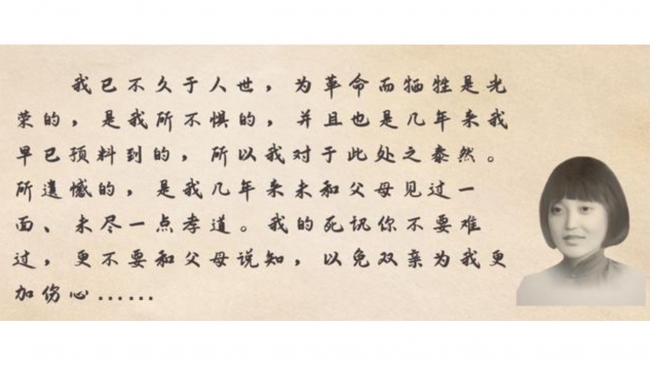 我已不久于人世，为革命而牺牲是光
荣的，是我所不惧的，并且也是几年来我
早已预料到的，所以我对于此处之泰然。
所遗憾的，是我几年来未和父母见过一
面、未尽一点孝道。我的死讯你不要难
过，更不要和父母说知，以免双亲为我更
加伤心……